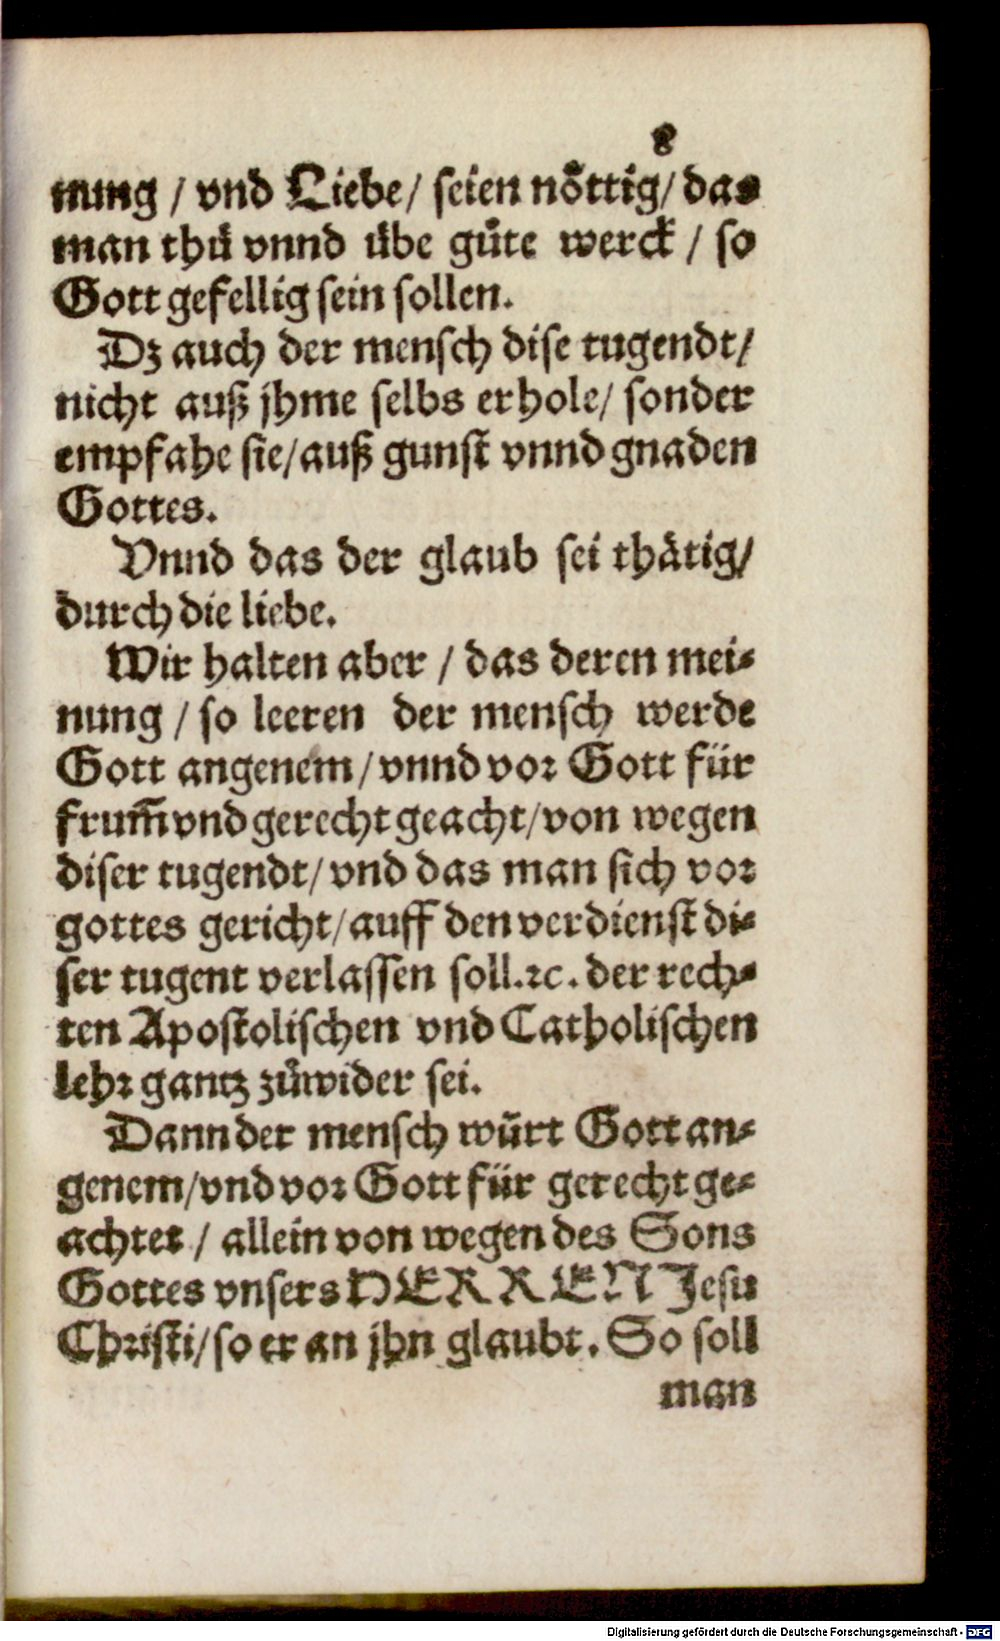 8
nung / vnd Liebe / seien nöttig / das
man thuͤ vnnd übe guͤte werck / so
Gott gefellig sein sollen.
Dz auch der mensch dise tugendt /
nicht auß jhme selbs erhole / sonder
empfahe sie / auß gunst vnnd gnaden
Gottes.
Vnnd das der glaub sei thätig /
durch die liebe.
Wir halten aber / das deren mei-
nung / so leeren der mensch werde
Gott angenem / vnnd vor Gott für
frum̃ vnd gerecht geacht / von wegen
diser tugendt / vnd das man sich vor
gottes gericht / auff den verdienst di-
ser tugent verlassen soll. ꝛc. der rech-
ten Apostolischen vnd Catholischen
lehr gantz zuͤwider sei.
Dann der mensch würt Gott an-
genem / vnd vor Gott für gerecht ge-
achtet / allein von wegen des Sons
Gottes vnsers HERREN Jesu
Christi / so er an jhn glaubt. So soll
man
Digitalisierung gefördert durch die Deutsche Forschungsgemeinschaft - DFG